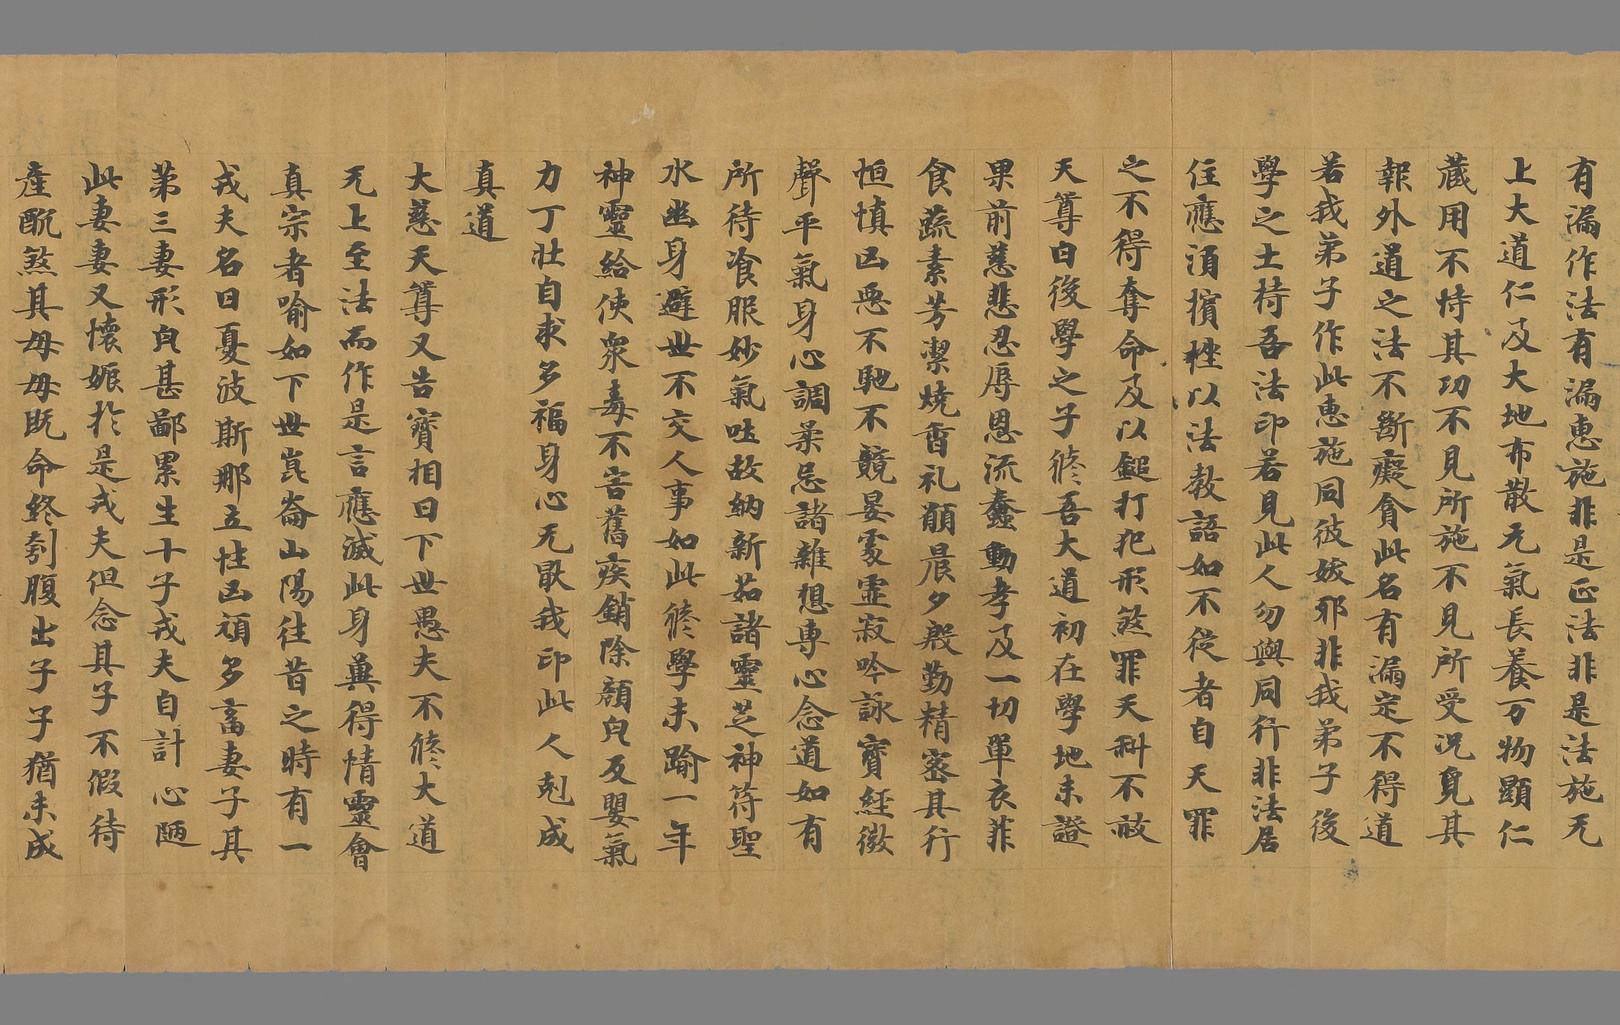 有漏作法有漏惠施非是正法非是法施无
上大道仁及大地布散元氣長養万物顯仁
藏用不恃其功不見所施不見所受況覓其
報外道之法不斷癡貪此名有漏定不得道
若我弟子作此惠施同彼妭邪非我弟子後
學之士持吾法印若見此人勿與同行非法居
住應湏擯桎以法教語如不從者自天罪
之不得奪命及以鎚打犯形煞罪天科不赦
天尊曰後學之子修吾大道初在學地未證
果前慈悲忍辱恩流蠢動孝及一切單衣菲
食蔬素芳潔燒香礼願晨夕殷勤精蜜其行
恒慎凶惡不馳不競晏處霊寂吟詠寶經微
聲平氣身心調柔忌諸雜想專心念道如有
所待飡服妙氣吐故納新茹諸靈芝神符聖
水幽身避世不交人事如此修學未踰一年
神靈給使衆毒不害舊疾銷除顏皃反嬰氣
力丁壯自求多福身心无歇我印此人剋成
真道
大慈天尊又告寶相曰下世愚夫不修大道
无上至法而作是言應滅此身兼得情靈會
真宗者喻如下世崑崙山陽往昔之時有一
戎夫名曰憂波斯那立性凶頑多畜妻子其
第三妻形皃甚鄙累生十子戎夫自計心陋
此妻妻又懷娠於是戎夫但念其子不假待
產酖煞其母母既命終刳腹出子子猶未成